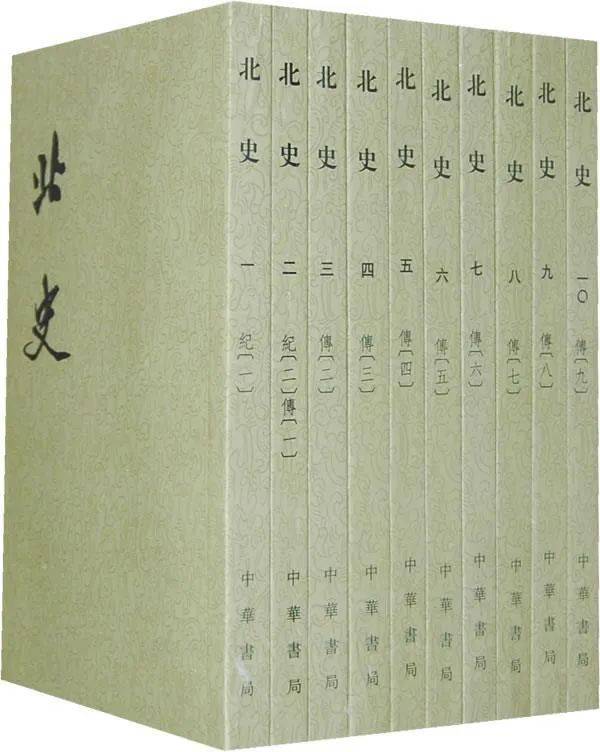 北史
北史 一 紀〔一〕 中華書局
北史 二 紀〔二〕傳〔一〕 中華書局
北史 三 傳〔二〕 中華書局
北史 四 傳〔三〕 中華書局
北史 五 傳〔四〕 中華書局
北史 六 傳〔五〕 中華書局
北史 七 傳〔六〕 中華書局
北史 八 傳〔七〕 中華書局
北史 九 傳〔八〕 中華書局
北史 一〇 傳〔九〕 中華書局